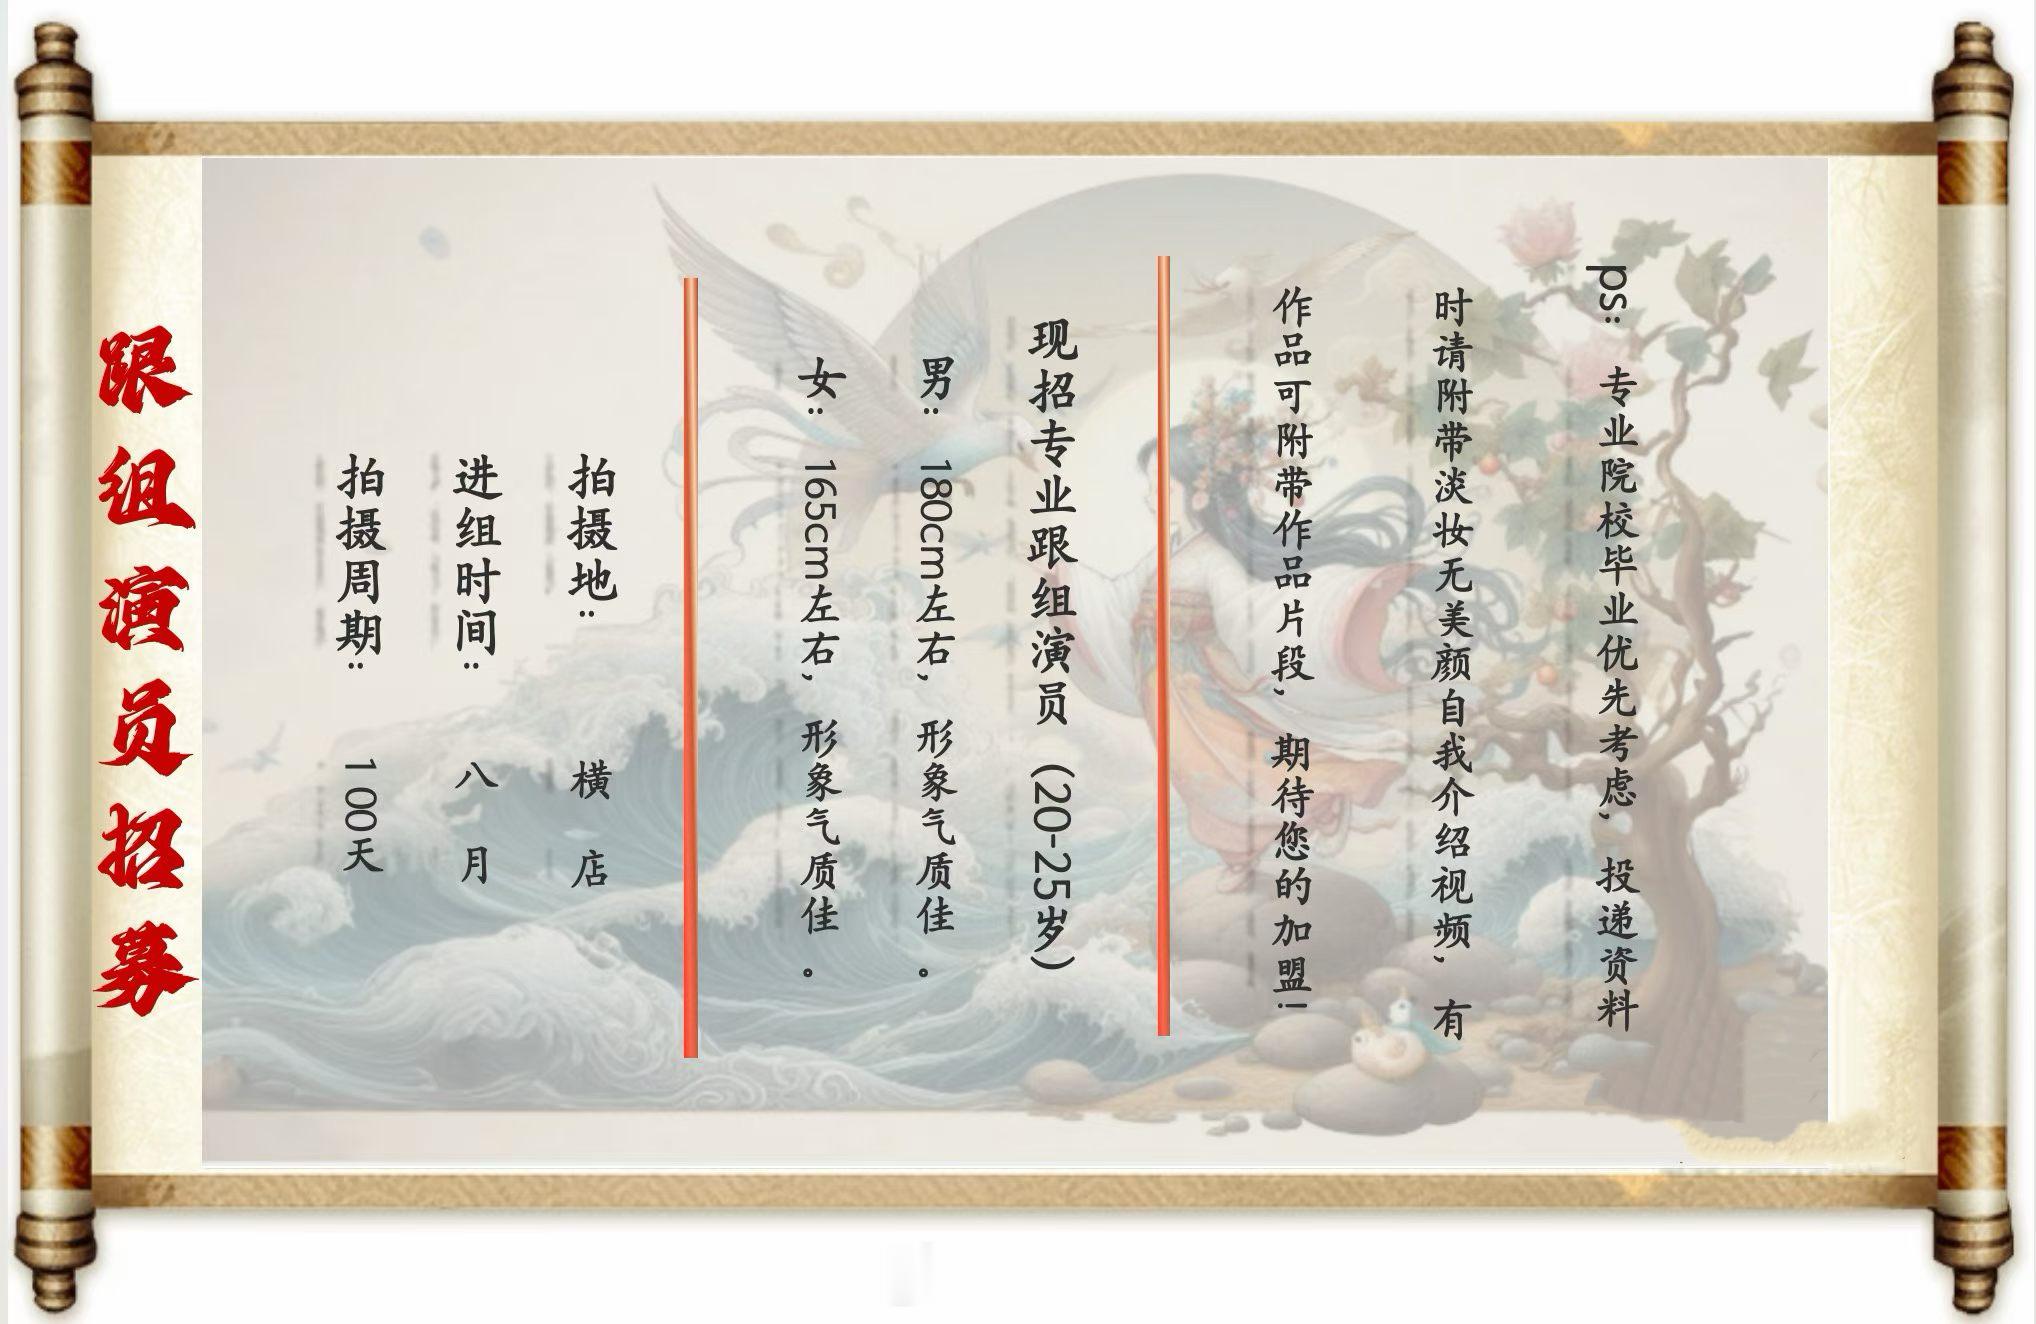 ps: 专业院校毕业优先考虑, 投递资料
时请附带淡妆无美颜自我介绍视频, 有
作品可附带作品片段, 期待您的加盟!
现招专业跟组演员 (20-25岁)
男: 180cm左右, 形象气质佳 。
女: 165cm左右, 形象气质佳 。
拍摄地: 横店
进组时间: 八月
拍摄周期: 100天
跟组演员招募